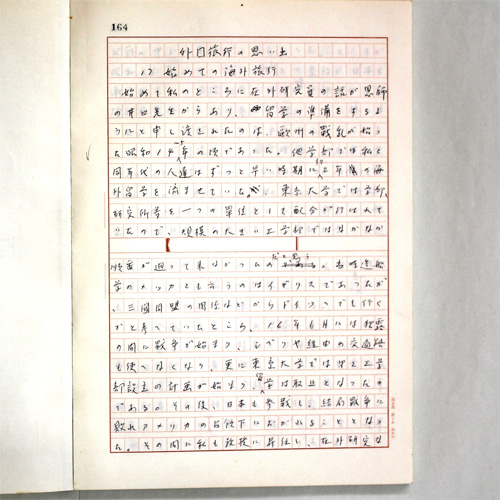 164
外国旅行の思い出
1) 始めての海外旅行
始めて私のところに在外研究員の話が恩師
の井口先生からあり、留学の準備をするよ
うにと申し渡されたのは、欧州の戦乱が始っ
た昭和14年の頃であった。他学部では私と
同年代の人達はずっと早い時期に2年の海
外留学を済ませていた。東京大学では学部、
研究所等を一つの単位として配分が行はれて
いたので、規模の大きい工学部ではなかなか
順番が廻って来なかったのだと思う。当時造船
学のメッカとも言うのはイギリスであったが
、三国同盟の関係などからドイツへでも行く
かと考へていたところ、16年6月には独露
の間に戦争が始まり、シベリヤ経由の交通路
も使へなくなり、更に東京大学では第二工学
部設立の計画が始まり、留学は取止となったの
である。その後、日本も参戦し、結局戦争に
敗れアメリカの占領下におかれることとなっ
た。その間に私も教授に昇任し、在外研究な